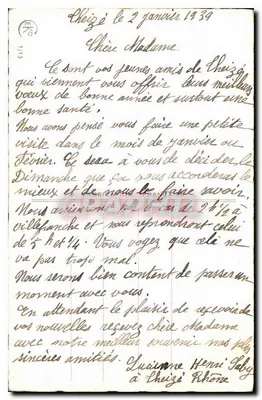 Theizé le 2 janvier 1939
Chère Madame
Ce sont vos jeunes amis de Theizé
qui viennent vous offrir leurs meilleurs
voeux de bonne année et surtout une
bonne santé.
Nous avons pensé vous faire une petite
visite dans le mois de janvier ou
février. Ce sera à vous de décider le
Dimanche que ça vous accordera le
mieux et de nous le faire savoir.
Nous arriverons de 2h 1/2 à
villefranche et nous reprendront celui
de 5h et 14. Vous voyez que celà ne
va pas trop mal.
Nous serons bien content de passer un
moment avec vous.
En attendant le plaisir de recevoir de
vos nouvelles recevez chère Madame
avec notre meilleur souvenir nos plus
sincères amitiés.
Lucienne Henri
à Theizé Rhône